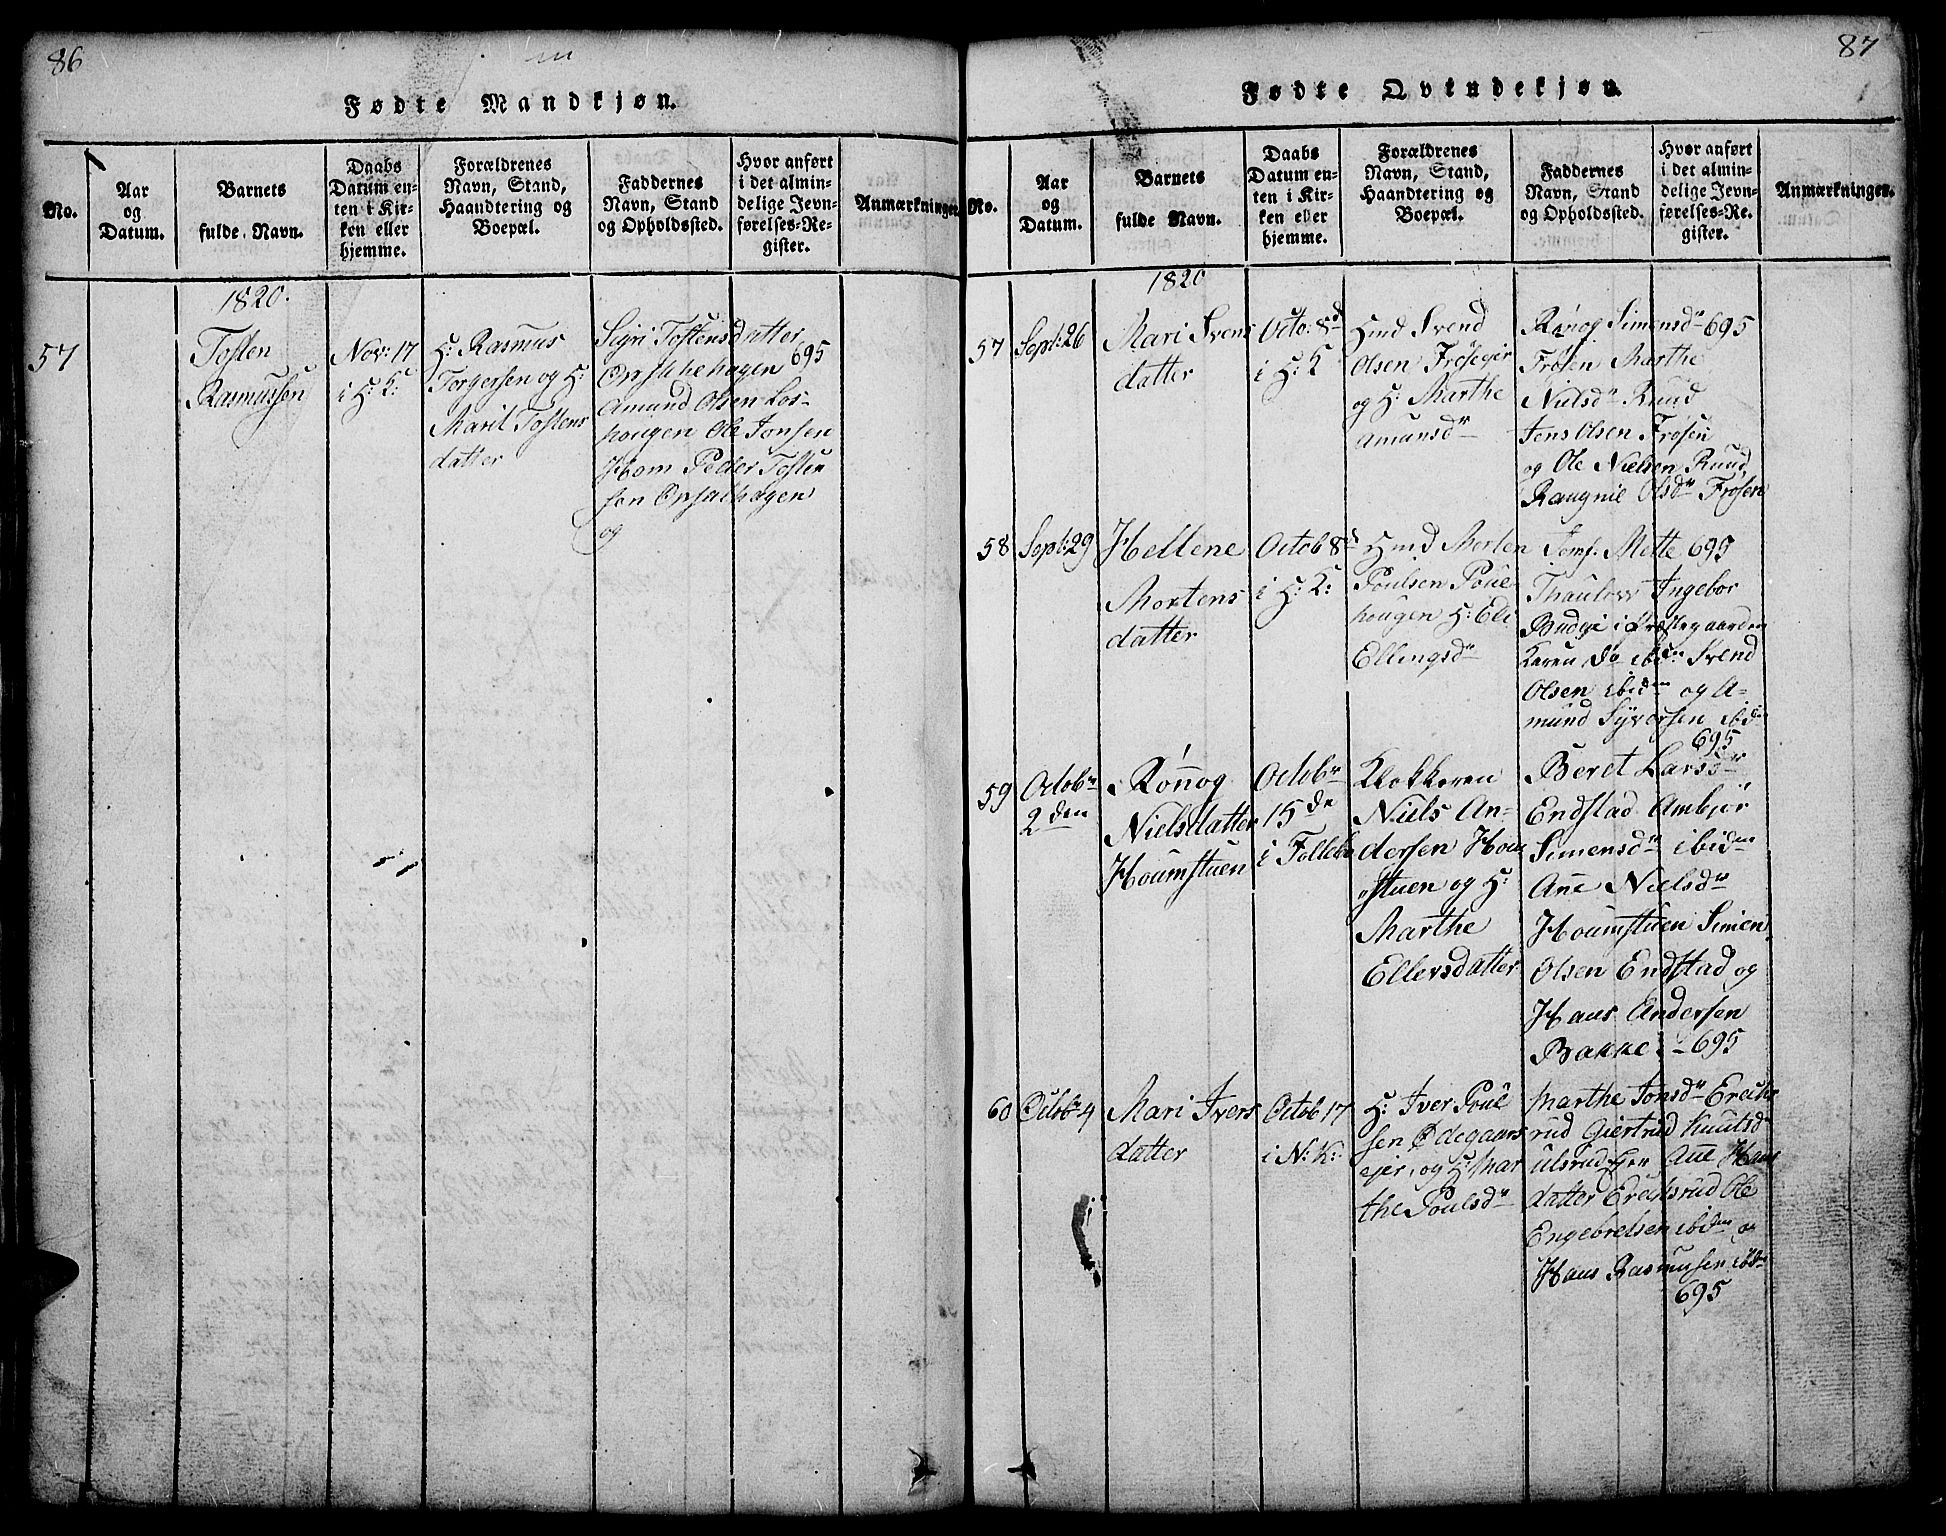 86
Fødte Mandkjøn.
No.
Aar
og
Datum.
Barnets
fulde Navn.
Daabs
Datum en-
ten i Kir-
ken eller
hjemme.
Forældrenes
Navn, Stand,
Haandtering og
Boepæl.
Faddernes
Navn, Stand
og Opholdssted.
Hvor anført
i det almin-
delige Jevn-
førelses-Re-
gister.
Anmærkninger.
1820.
57
Tosten
Rasmussen
Nov: 17
i H: K:
H: Rasmus
Torgersen og H:
Marit Tostens
datter
Sigri Tostensdatter
Opsalhehagen 695
Amund Olsen Los-
hougen Ole Jonsen
Hom Peder Tosten
sen Opsalhagen
og
87
Fødte Qvindekjøn.
No.
Aar
og
Datum.
Barnets
fulde Navn.
Daabs
Datum en-
ten i Kir-
ken eller
hjemme.
Forældrenes
Navn, Stand,
Haandtering og
Boepæl.
Faddernes
Navn, Stand
og Opholdssted.
Hvor anført
i det almin-
delige Jevn-
førelses-Re-
gister.
Anmærkninger.
1820
57
Sept: 26
Mari Svens
datter
Octo: 8d
i H: K
Hmd Svend
Olsen Frøsegir
og H: Marthe
Amunsdr
Rönog Simensdr 695
Frøsen Marthe
Nielsdr Ruud
Jens Olsen Frøsen
og Ole Nielsen Ruud
Raugnil Olsdr Frosen
58
Sept: 29
Hellene
Mortens
datter
Octob 8d
i H: K:
Hmd Morten
Poulsen Poul
hougen H: Eli
Ellingsdr
Jomf. Mette 695
Thaulow Ingebor
Budyi i Præstegaarden
Karen do ibidm Svend
Olsen ibidm og A-
mund Syversen ibidm
59
Octobr
2den
Rönnog
Nielsdatter
Houmstuen
Octobr
15de
i Follebu
Klokkeren
Niels An-
dersen Hom
stuen og H:
Marthe
Ellersdatter
695
Beret Larsdr
Endstad Ambjør
Simensdr ibidm
Anne Nielsdr
Houmstuen Simen
Olsen Endstad og
Hans Andersen
Bakke - 695
60
Octobr 4
Mari Ivers
datter
Octob 17
i N: K:
H: Iver Poul
sen Ødegaars
ejer, og H: Mar
the Poulsdr
Marthe Jonsdr Erichs
rud Giertrud Knutsdr
Ulsrud Ejer Ane Hans
datter Erichsrud Ole
Engebretsen ibidm og
Hans Rasmusen ibidm
695